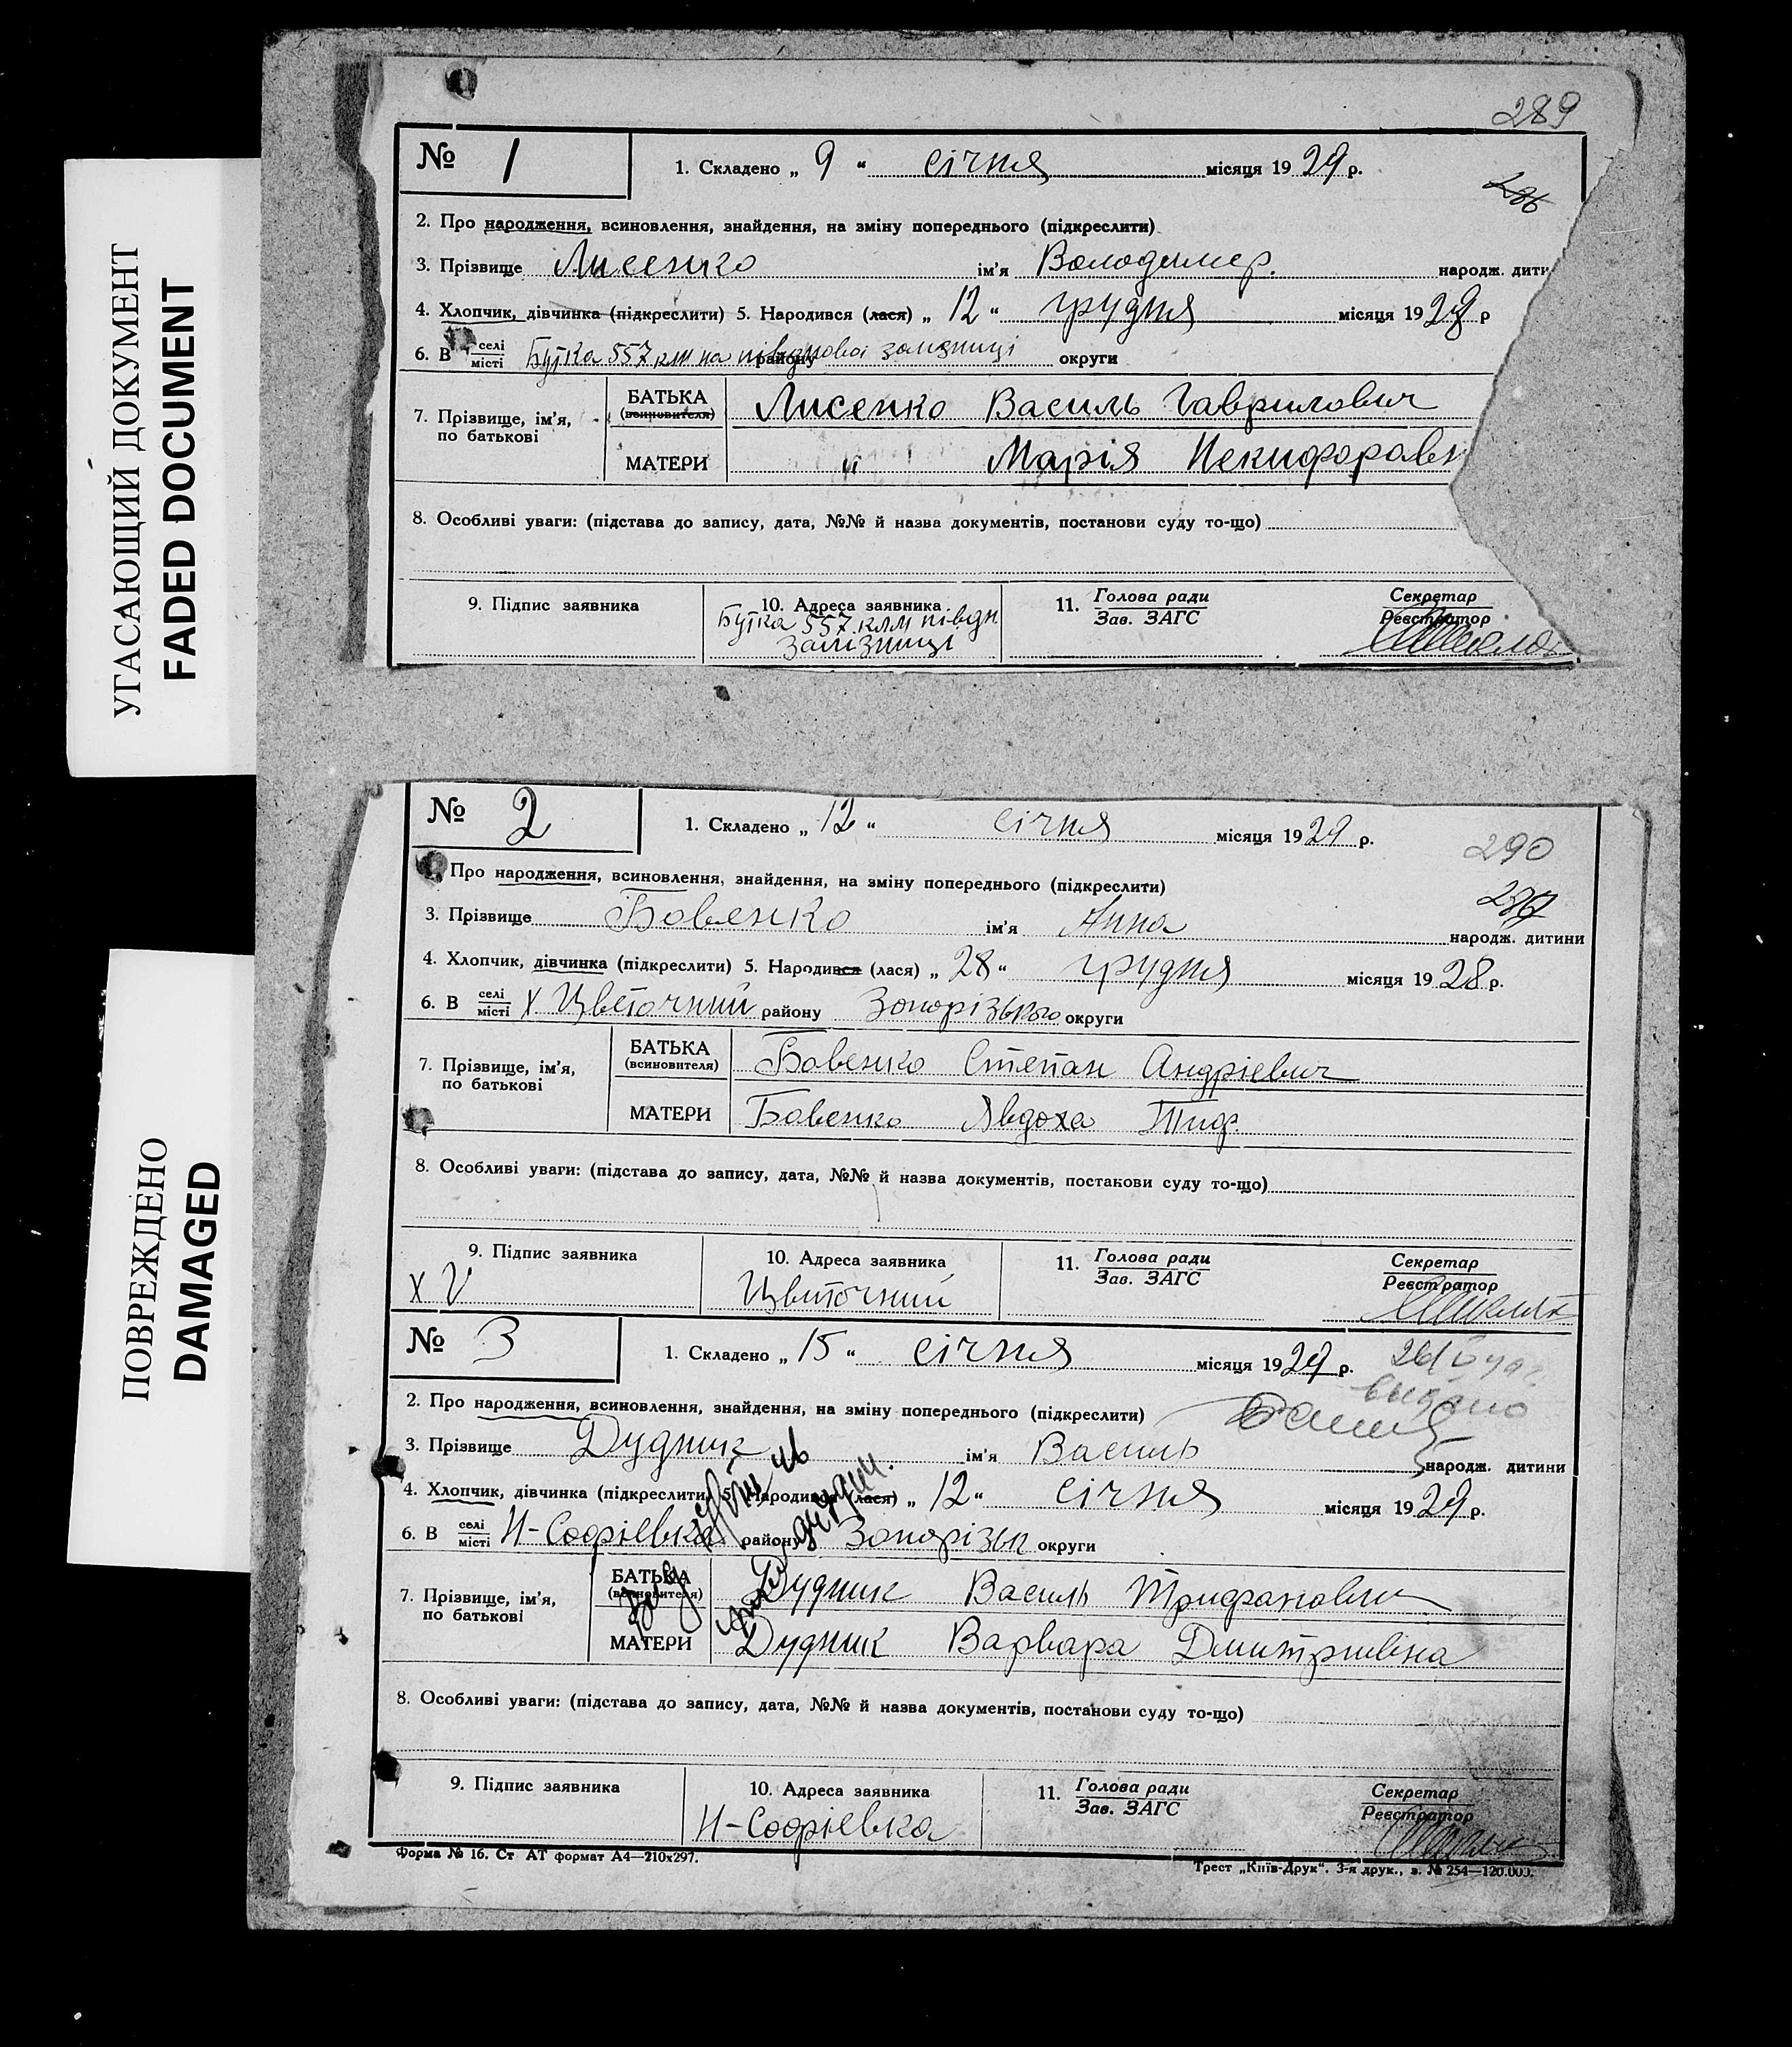 УГАСАЮЩИЙ ДОКУМЕНТ
FADED DOCUMENT
ПОВРЕЖДЕНО
DAMAGED
289
№ 1
1. Складено „ 9 “ січня місяця 19 29 р.
286
2. Про народження, всиновлення, знайдення, на зміну попереднього (підкреслити)
3. Прізвище Лисенко ім'я Володимер. народж. дити
4. Хлопчик, дівчинка (підкреслити) 5. Народився (лася) „ 12 “ грудня місяця 19 28 р
6. В селі/місті Будка 557 клм на південової залізниці району округи
7. Прізвище, ім'я, по батькові
БАТЬКА (всиновителя) Лисенко Василь Гаврилович
МАТЕРИ " Марія Некифоровн
8. Особливі уваги: (підстава до запису, дата, №№ й назва документів, постанови суду то-що)
9. Підпис заявника
10. Адреса заявника
Будка 557 клм півдн
залізниці
11. Голова ради
Зав. ЗАГС
Секретар
Реєстратор
№ 2
1. Складено „ 12 “ січня місяця 19 29 р.
290
287
Про народження, всиновлення, знайдення, на зміну попереднього (підкреслити)
3. Прізвище Бовенко ім'я Анна народж. дитини
4. Хлопчик, дівчинка (підкреслити) 5. Народився (лася) „ 28 “ грудня місяця 19 28 р.
6. В селі/місті х Цветочний району Запорізького округи
7. Прізвище, ім'я, по батькові
БАТЬКА (всиновителя) Бовенко Степан Андрієвич
МАТЕРИ Бовенко Явдоха Тиф.
8. Особливі уваги: (підстава до запису, дата, №№ й назва документів, постанови суду то-що)
9. Підпис заявника
х V
10. Адреса заявника
Цвиточний
11. Голова ради
Зав. ЗАГС
Секретар
Реєстратор
№ 3
1. Складено „ 15 “ січня місяця 19 29 р.
видано
2. Про народження, всиновлення, знайдення, на зміну попереднього (підкреслити)
3. Прізвище Дудник ім'я Василь народж. дитини
4. Хлопчик, дівчинка (підкреслити) 5. Народився (лася) „ 12 “ січня місяця 19 29 р.
6. В селі/місті Н-Софіевка району Запорізьк округи
7. Прізвище, ім'я, по батькові
БАТЬКА (всиновителя) Дудник Василь Трифанович
МАТЕРИ Дудник Варвара Дмитриівна
8. Особливі уваги: (підстава до запису, дата, №№ й назва документів, постанови суду то-що)
9. Підпис заявника
10. Адреса заявника
Н-Софіевка
11. Голова ради
Зав. ЗАГС
Секретар
Реєстратор
Форма № 16. Ст АТ формат А4—210х297.
Трест „Київ-Друк“. 3-я друк., з. № 254—120.000.